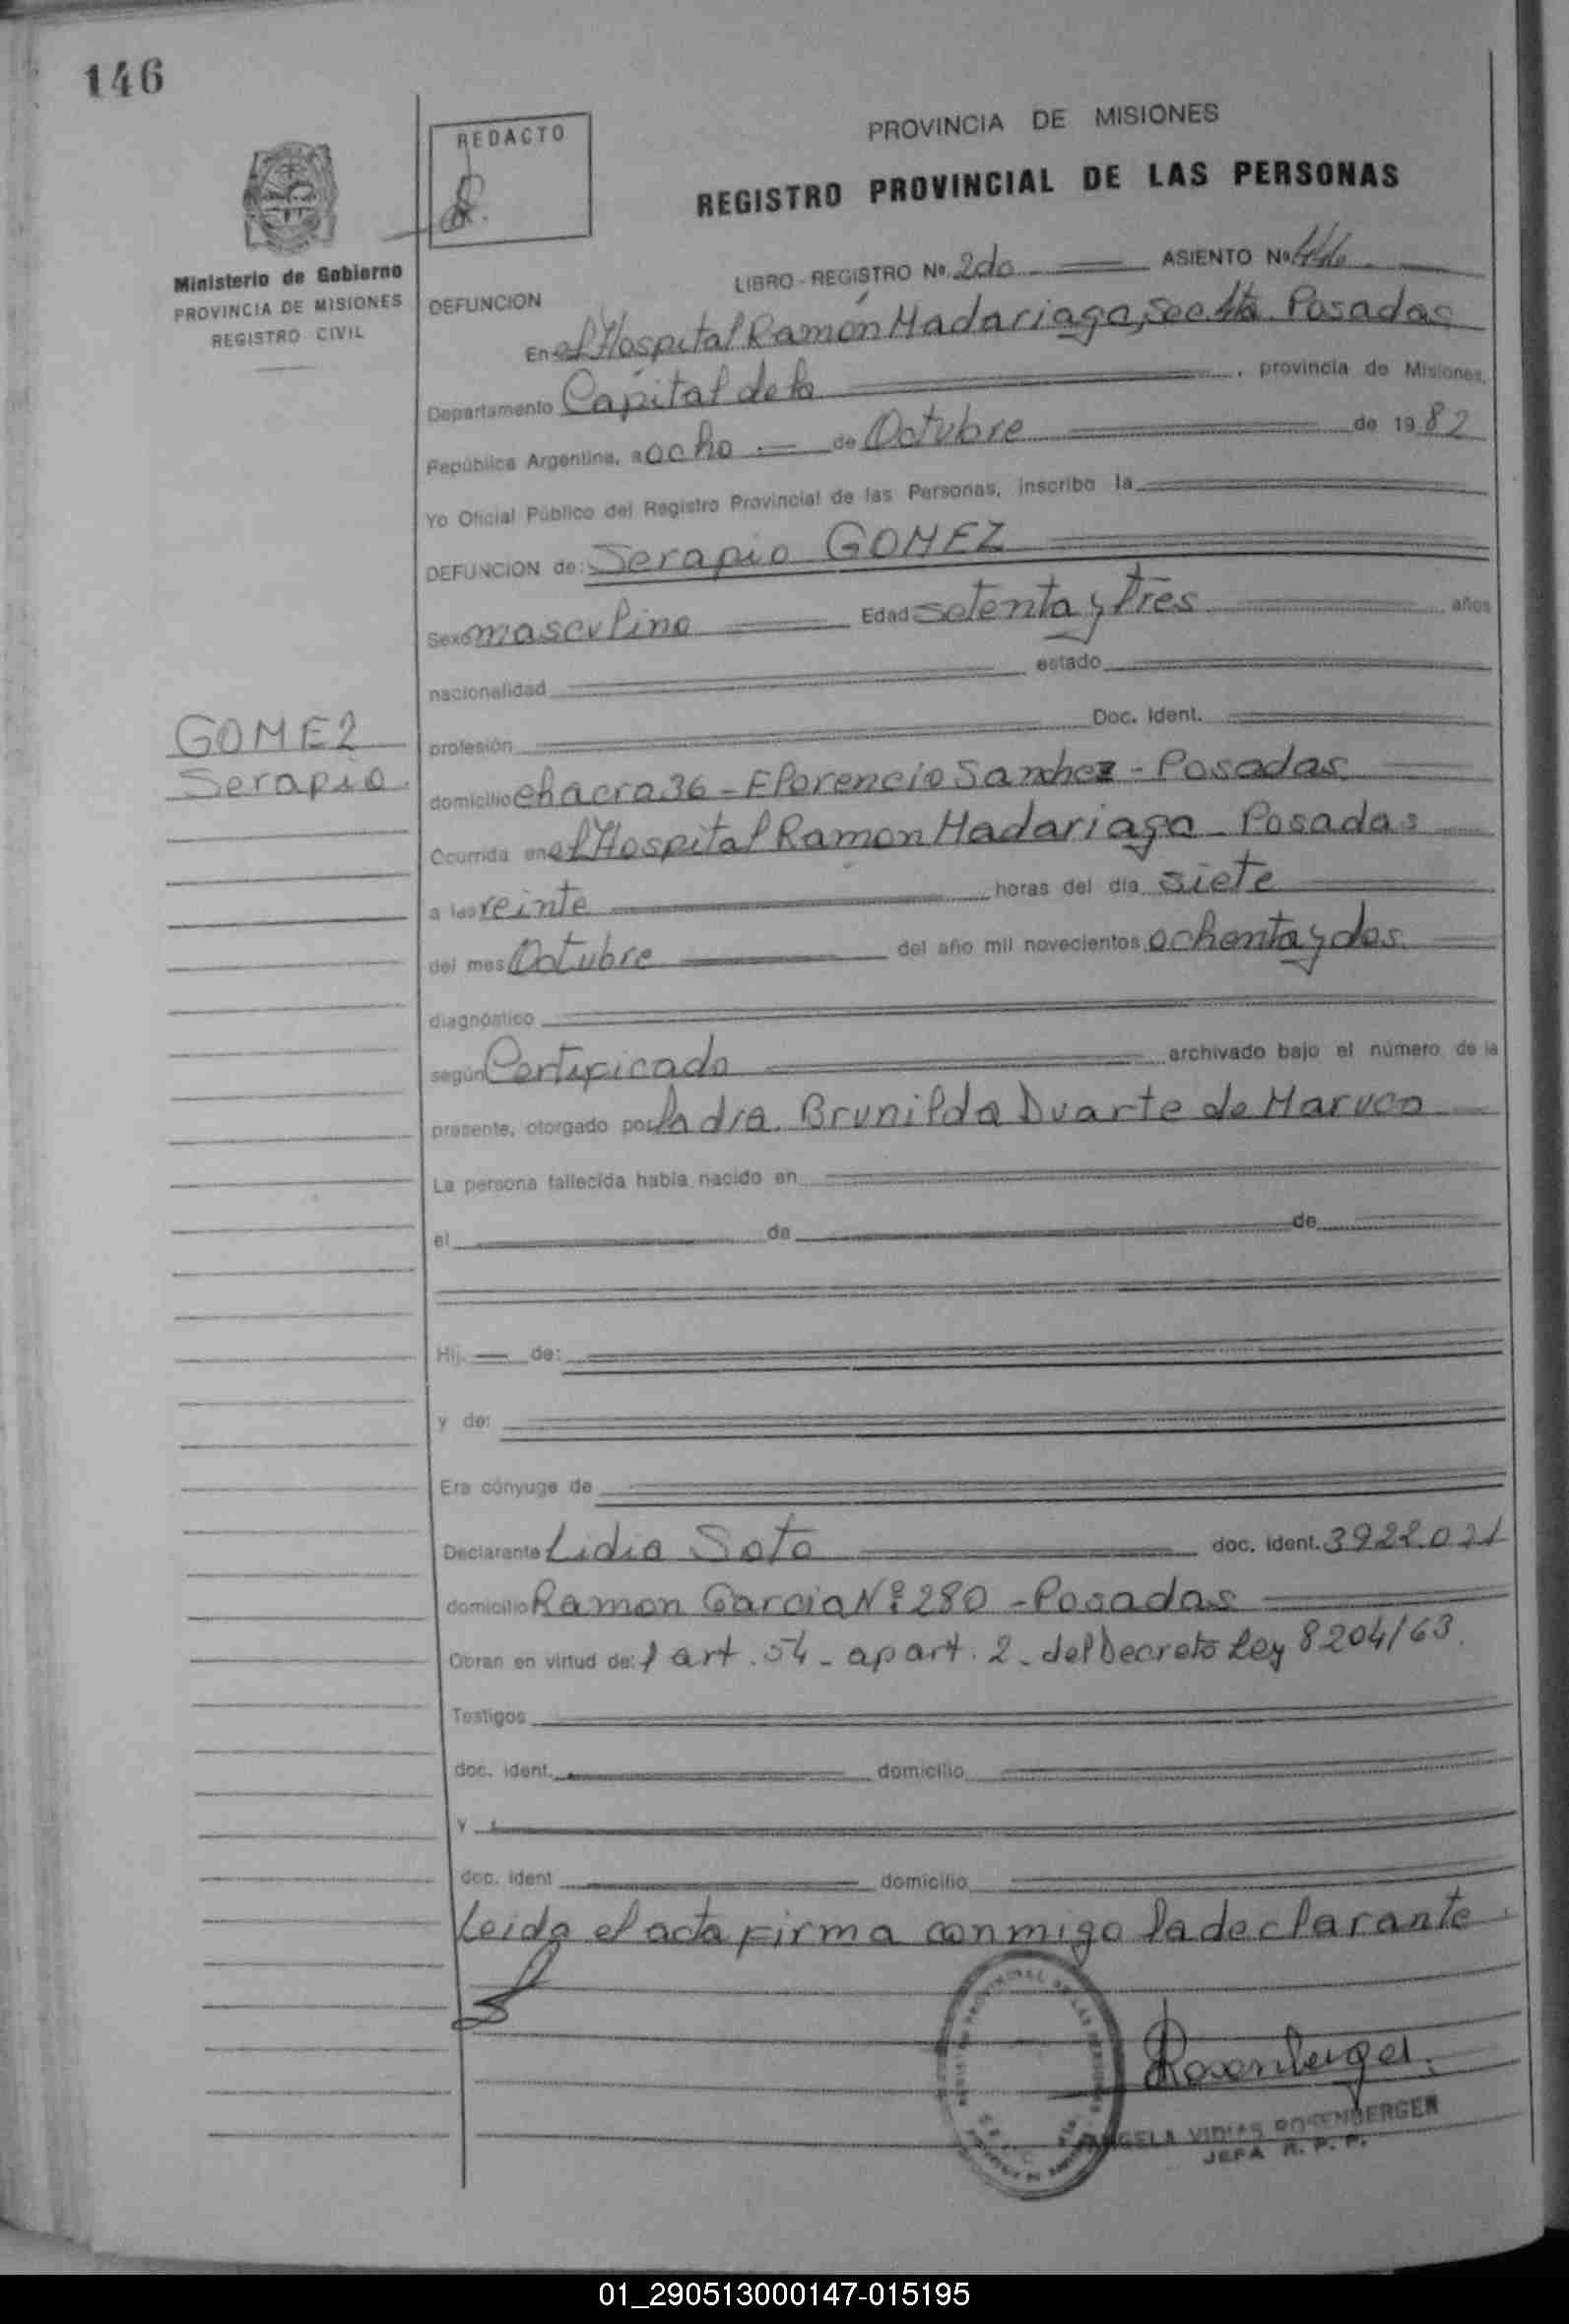 146
REDACTO
PROVINCIA DE MISIONES
REGISTRO PROVINCIAL DE LAS PERSONAS
Ministerio de Gobierno
PROVINCIA DE MISIONES
REGISTRO CIVIL
LIBRO - REGISTRO Nº 2do ASIENTO Nº
DEFUNCION
En el Hospital Ramón Madariaga, Sec. 4ta. Posadas
Departamento Capital de la , provincia de Misiones,
República Argentina, a ocho de Octubre de 1982
Yo Oficial Público del Registro Provincial de las Personas, inscribo la
DEFUNCION de: Serapio GOMEZ
Sexo masculino Edad setenta y tres años
nacionalidad estado
GOMEZ
Serapio.
profesión Doc. Ident.
domicilio chacra 36 - Florencio Sanchez - Posadas
Ocurrida en el Hospital Ramon Madariaga - Posadas
a las veinte horas del día siete
del mes Octubre del año mil novecientos ochenta y dos
diagnóstico
según Certificado archivado bajo el número de la
presente, otorgado por la dra. Brunilda Duarte de
La persona fallecida había nacido en
el de de
Hij. de:
y de:
Era cónyuge de
Declarante Lidia Soto doc. ident. 3922.021
domicilio Ramon Garcia Nº 280 - Posadas
Obran en virtud de: l art. 54 - apart. 2 - del Decreto Ley 8204/63.
Testigos
doc. ident. domicilio
y
doc. ident domicilio
Leida el acta firma conmigo la declarante.
Rosenberger.
ANGELA ROSENBERGER
JEFA R. P. P.
01_290513000147-015195